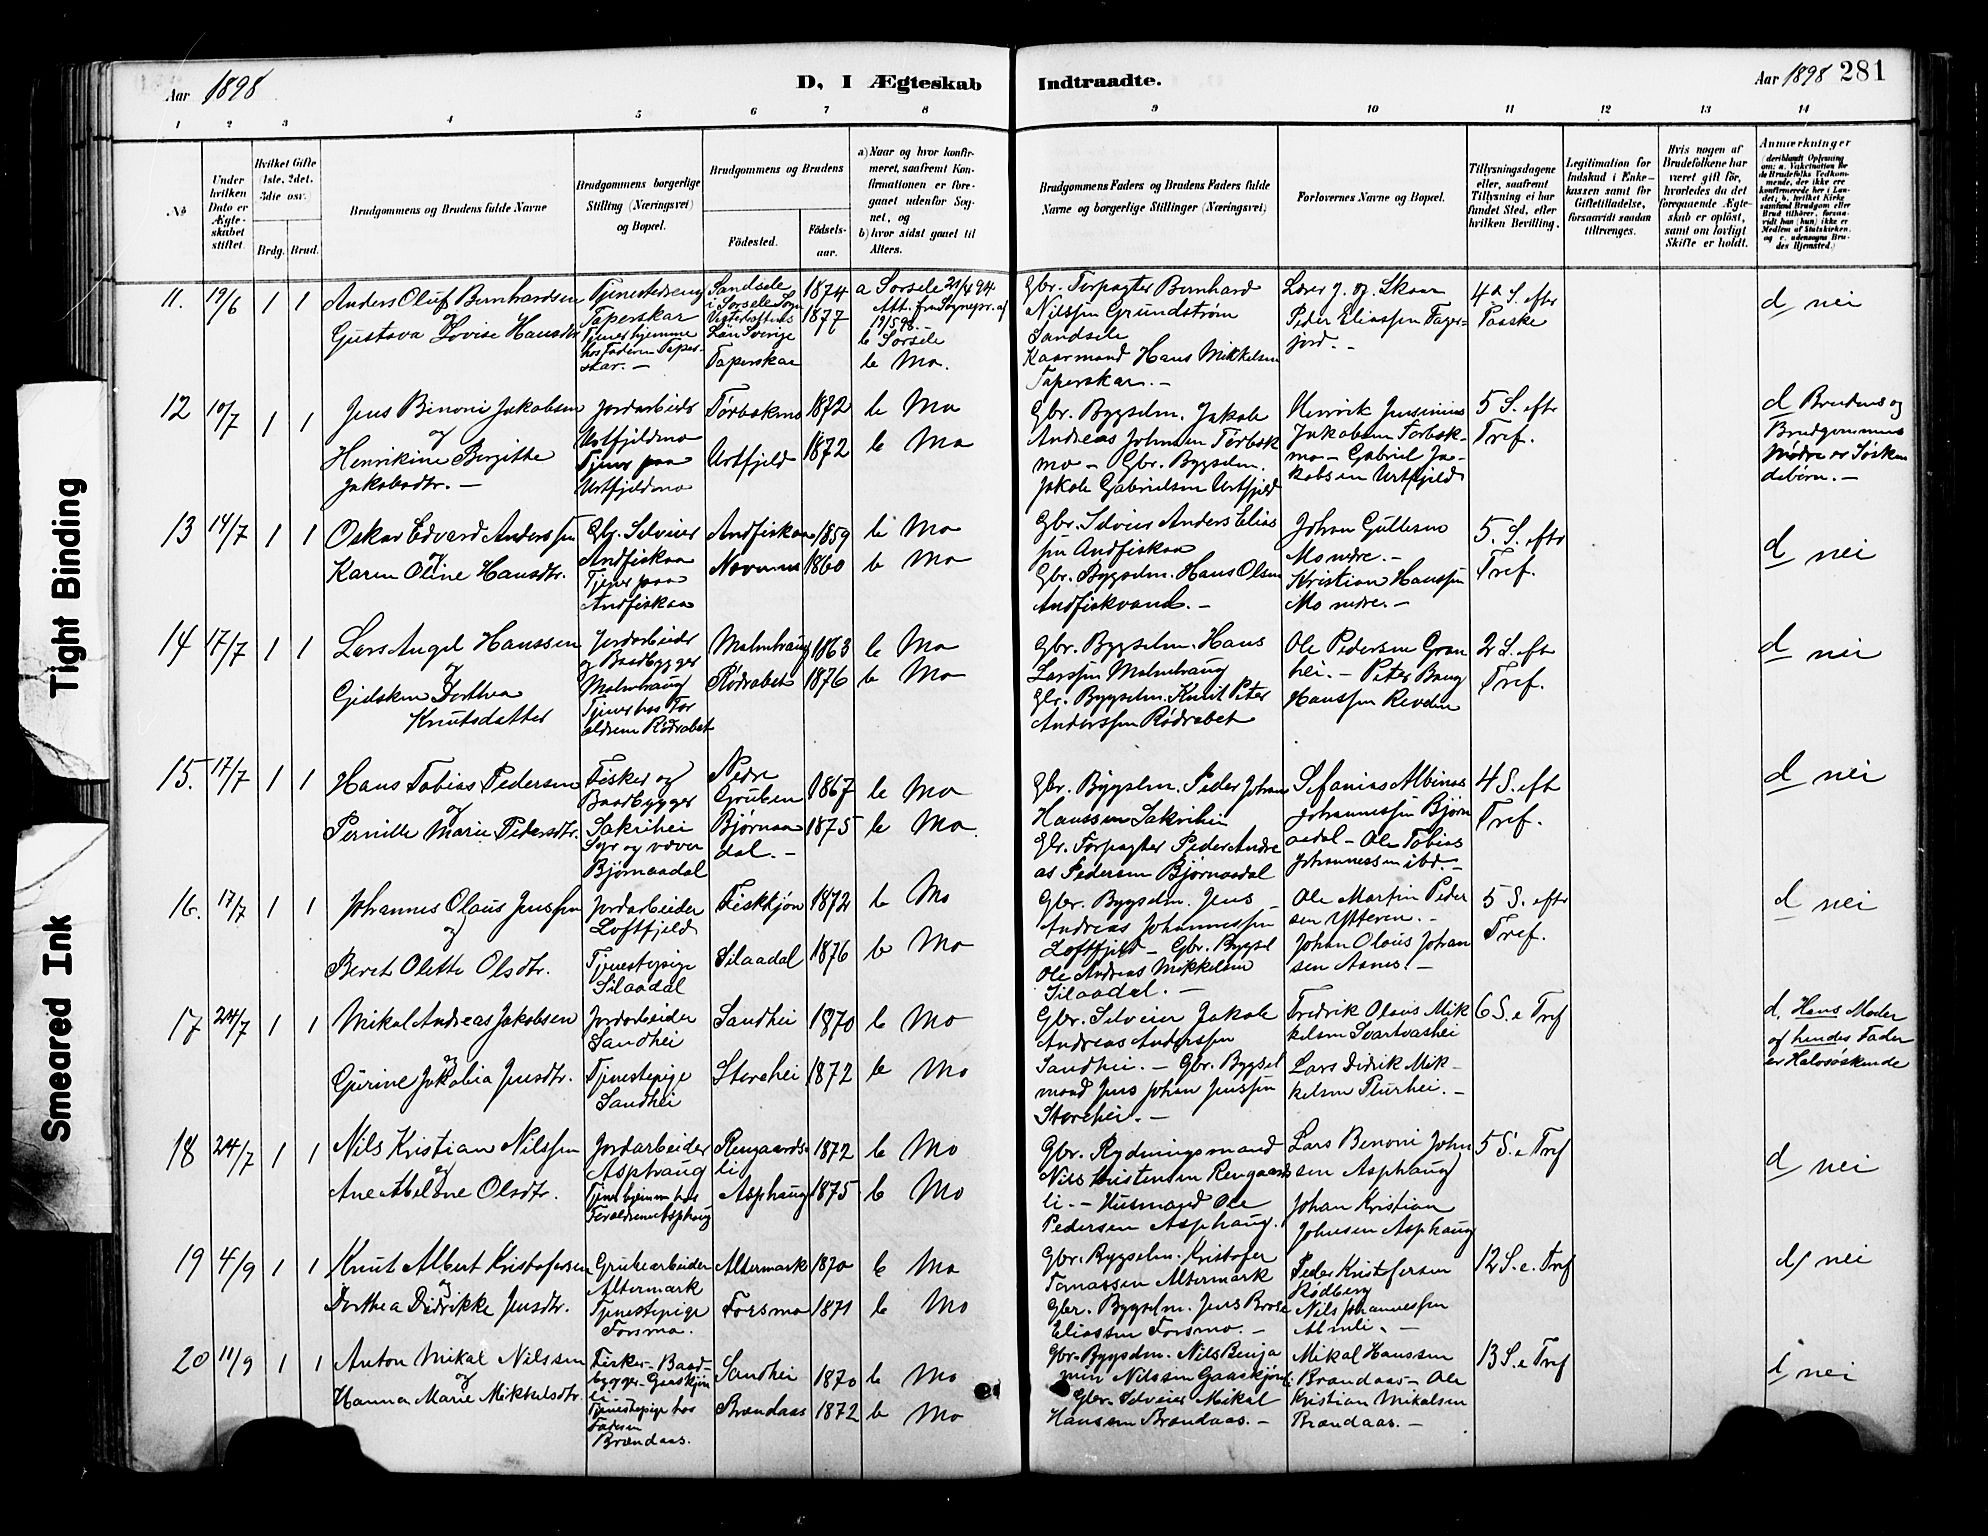 Aar 1898
D. I Ægteskab
Indtraadte.
Aar 1898 281
1 2 3 4 5 6 7 8 9 10 11 12 13 14
No
Under hvilken Dato er Ægteskabet stiftet.
Hvilket Gifte (1ste, 2det, 3die osv.)
Brdg. Brud.
Brudgommens og Brudens fulde Navne
Brudgommens borgerlige Stilling (Næringsvei) og Bopæl.
Brudgommens og Brudens
Födested.
Födselsaar.
a) Naar og hvor konfirmeret, saafremt Konfirmationen er foregaaet udenfor Sognet, og
b) hvor sidst gaaet til Alters.
Brudgommens Faders og Brudens Faders fulde Navne og borgerlige Stillinger (Næringsvei)
Forlovernes Navne og Bopæl.
Tillysningsdagene eller, saafremt Tillysning ei har fundet Sted, efter hvilken Bevilling.
Legitimation for Indskud i Enkekassen samt for Giftetilladelse, forsaavidt saadan tiltrænges.
Hvis nogen af Brudefolkene har været gift för, hvorledes da det foregaaende Ægteskab er oplöst, samt om lovligt Skifte er holdt.
Anmærkninger
11. 19/6 1 1
Anders Oluf Bernhardsen
og
Gustava Lovise Hansdtr
Tjenestedreng
Taperskar
Tjener hjemme
hos Faderen Taperskar. —
Sandsele
i Sorsele Sogn
Län Sverige
Taperskar
1874
1877
a Sorsele 21/6 94
Att. fra Sognepr. af
19/5 98. —
b Sorsele
b Mo.
Gbr. Forpagter Bernhard
Nilssen Grundström
Sandsele
Kaarmand Hans Mikkelsen
Taperskar. —
Peder Eliassen Fagerjord. —
4de S. efter
Paaske
d nei
12 10/7 1 1
Jens Benoni Jakobsen
og
Henrikine Birgitte
Jakobsdtr. —
Jordarbeider
Urtfjeldmo
Tjener paa
Urtfjeldmo
Urtfjeld
1872
1872
b Mo
b Mo
Gbr. Bygselm. Jakob
Gbr. Bygselm.
Jakob Gabrielsen Urtfjeld
Henrik Jensenius
Gabriel Jakobsen Urtfjeld
5 S. efter
Tref.
d Brudens og
Brudgommens
Mødre er Søskendebørn. —
13 14/7 1 1
Oskar Edvard Anderssen
og
Karen Oline Hansdtr.
Gbr. Selveier
Andfiskaa
Tjener paa
Andfiskaa
Andfiskaa
1859
1860
b Mo
b Mo
Gbr. Selveier Anders Eliassen Andfiskaa
Gbr. Bygselm. Hans Olsen
Andfiskvand. —
Johan Gullesen
Mo nedre. —
Kristian Hanssen
Mo nedre. —
5. S. efter
Tref.
d nei
14 17/7 1 1
Lars Angel Hanssen
og
Gidsken Dorthea
Knutsdatter
Jordarbeider
og Baadbygger
Malmhaug
Tjener hos Forældrene Rødrabet
Malmhaug
Rødrabet
1863
1876
b Mo
b Mo
Gbr. Bygselm. Hans
Larssen Malmhaug
Gbr. Bygselm. Knut Peter
Anderssen Rødrabet
Ole Pedersen Granhei. — Peter Bang
Hanssen Revelen
2 S. eft
Tref.
d nei
15. 17/7 1 1
Hans Tobias Pedersen
og
Pernille Marie Pedersdtr.
Fisker og
Baadbygger
Sakrihei
Syr og væver
Bjørnaadal
Nedre
Gruben
Bjørnaadal. —
1867
1875
b Mo
b Mo.
Gbr. Bygselm. Peder Johan
Hanssen Sakrihei
Gbr. Forpagter Peder Andreas Pedersen Bjørnaadal
Stefanias Albinus
Johannessen Bjørnaadal — Ole Tobias
Johannessen ibd. —
4 S. eft
Tref.
d nei
16. 17/7 1 1
Johannes Olaus Jenssen
og
Beret Olette Olsdtr.
Jordarbeider
Loftfjeld
Tjenestepige
Silaadal
Fisktjøn
Silaadal
1872
1876
b Mo
b Mo
Gbr. Bygselm. Jens
Andreas Johannessen
Loftfjeld — Gbr. Bygsel
Ole Andreas Mikkelsen
Silaadal. —
Ole Martin Pedersen Ytteren. —
Johan Olaus Johansen Aanes. —
5 S. efter
Tref.
d nei
17 24/7 1 1
Mikal Andreas Jakobsen
og
Gurine Jakobia Jensdtr.
Jordarbeider
Sandhei
Tjenestepige
Sandhei
Sandhei
Storehei
1870
1872
b Mo
b Mo
Gbr. Selveier Jakob
Andreas Anderssen
Sandhei. — Gbr. Bygselmand Jens Johan Jenssen
Storehei. —
Fredrik Olaus Mikkelsen Svartvashei
Lars Didrik Mikkelsen Plurhei. —
6 S. e Tref
d. Hans Moder
og hendes Fader
er Halvsøskende
18 24/7 1 1
Nils Kristian Nilssen
og
Ane Abelone Olsdtr.
Jordarbeider
Asphaug
Tjener hjemme hos
Forældrene Asphaug
Rengaardsli
Asphaug
1872
1875
b Mo
b Mo
Gbr. Rydningsmand
Nils Kristensen Rengaardsli. — Husmand Ole
Pedersen Asphaug.
Lars Benoni Johnsen Asphaug
Johan Kristian
Johnsen Asphaug
5 S. e Tref
d nei
19 4/9 1 1
Knut Albert Kristofersen
og
Dorthea Didrikke Jensdtr.
Grubearbeider
Altermark
Tjenestepige
Forsmo.
Altermark
Forsmo
1870
1871
b Mo
b Mo
Gbr. Bygselm. Kristofer
Tomassen Altermark
Gbr. Bygselm. Jens Brose
Eliassen Forsmo. —
Peder Kristofersen
Rødberg
Nils Johannessen
Almli. —
12 S. e. Tref
d nei
20 11/9 1 1
Anton Mikal Nilssen
og
Hanna Marie Mikkelsdtr.
Fisker- Baadbygger- Gaaskjønli
Tjenestepige hos
Faderen
Brændaas.
Sandhei
Brændaas
1870
1872
b Mo
b Mo
Gbr. Bygselm. Nils Benjamin Nilssen Gaaskjønli
Gbr. Selveier Mikal
Hanssen Brændaas. —
Mikal Hanssen
Brændaas — Ole
Kristian Mikalsen
Brændaas. —
13 S. e Tref
d nei
Tight Binding
Smeared Ink